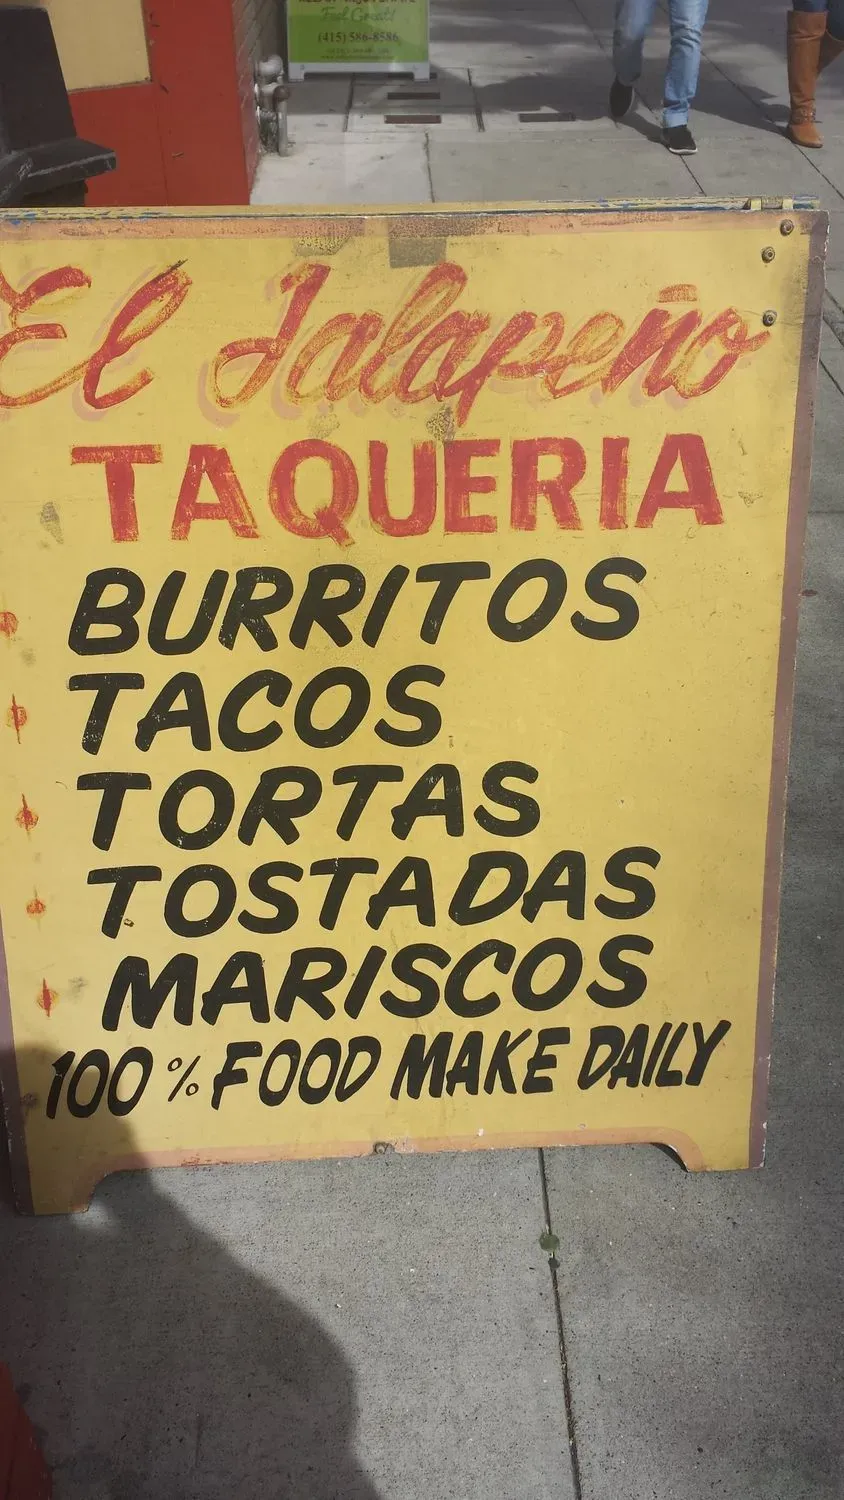 Feel Great!
(415) 586-8586
El Jalapeño
TAQUERIA
BURRITOS
TACOS
TORTAS
TOSTADAS
MARISCOS
100% FOOD MAKE DAILY